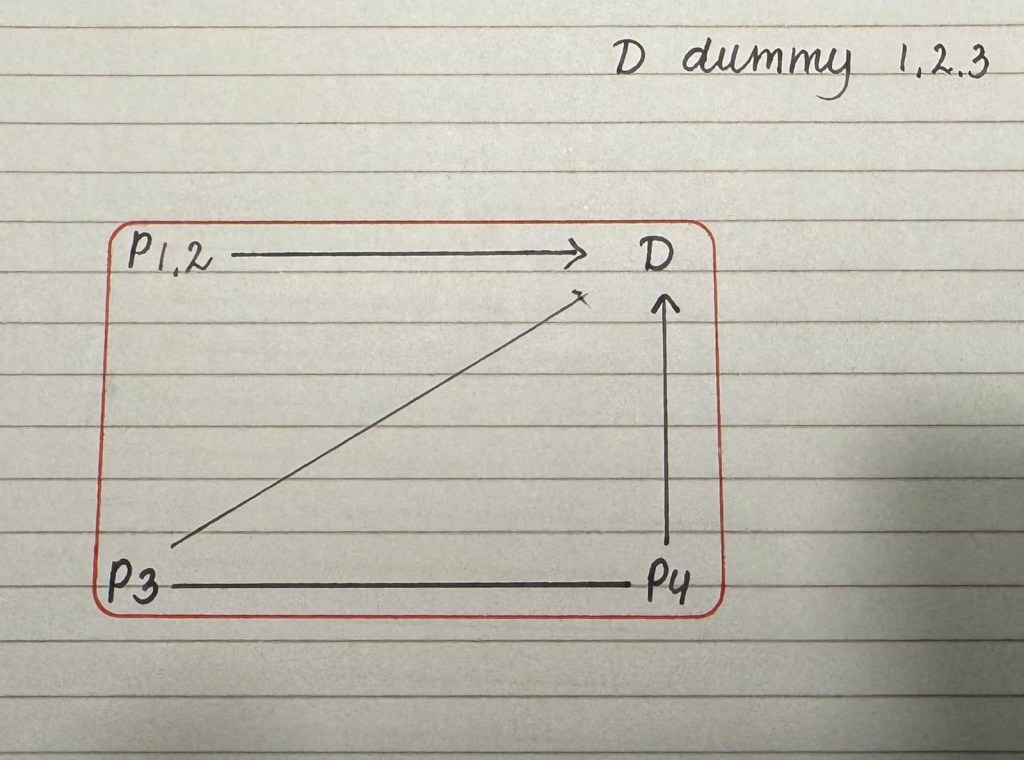 D dummy 1,2.3
P1,2 D
P3 P4